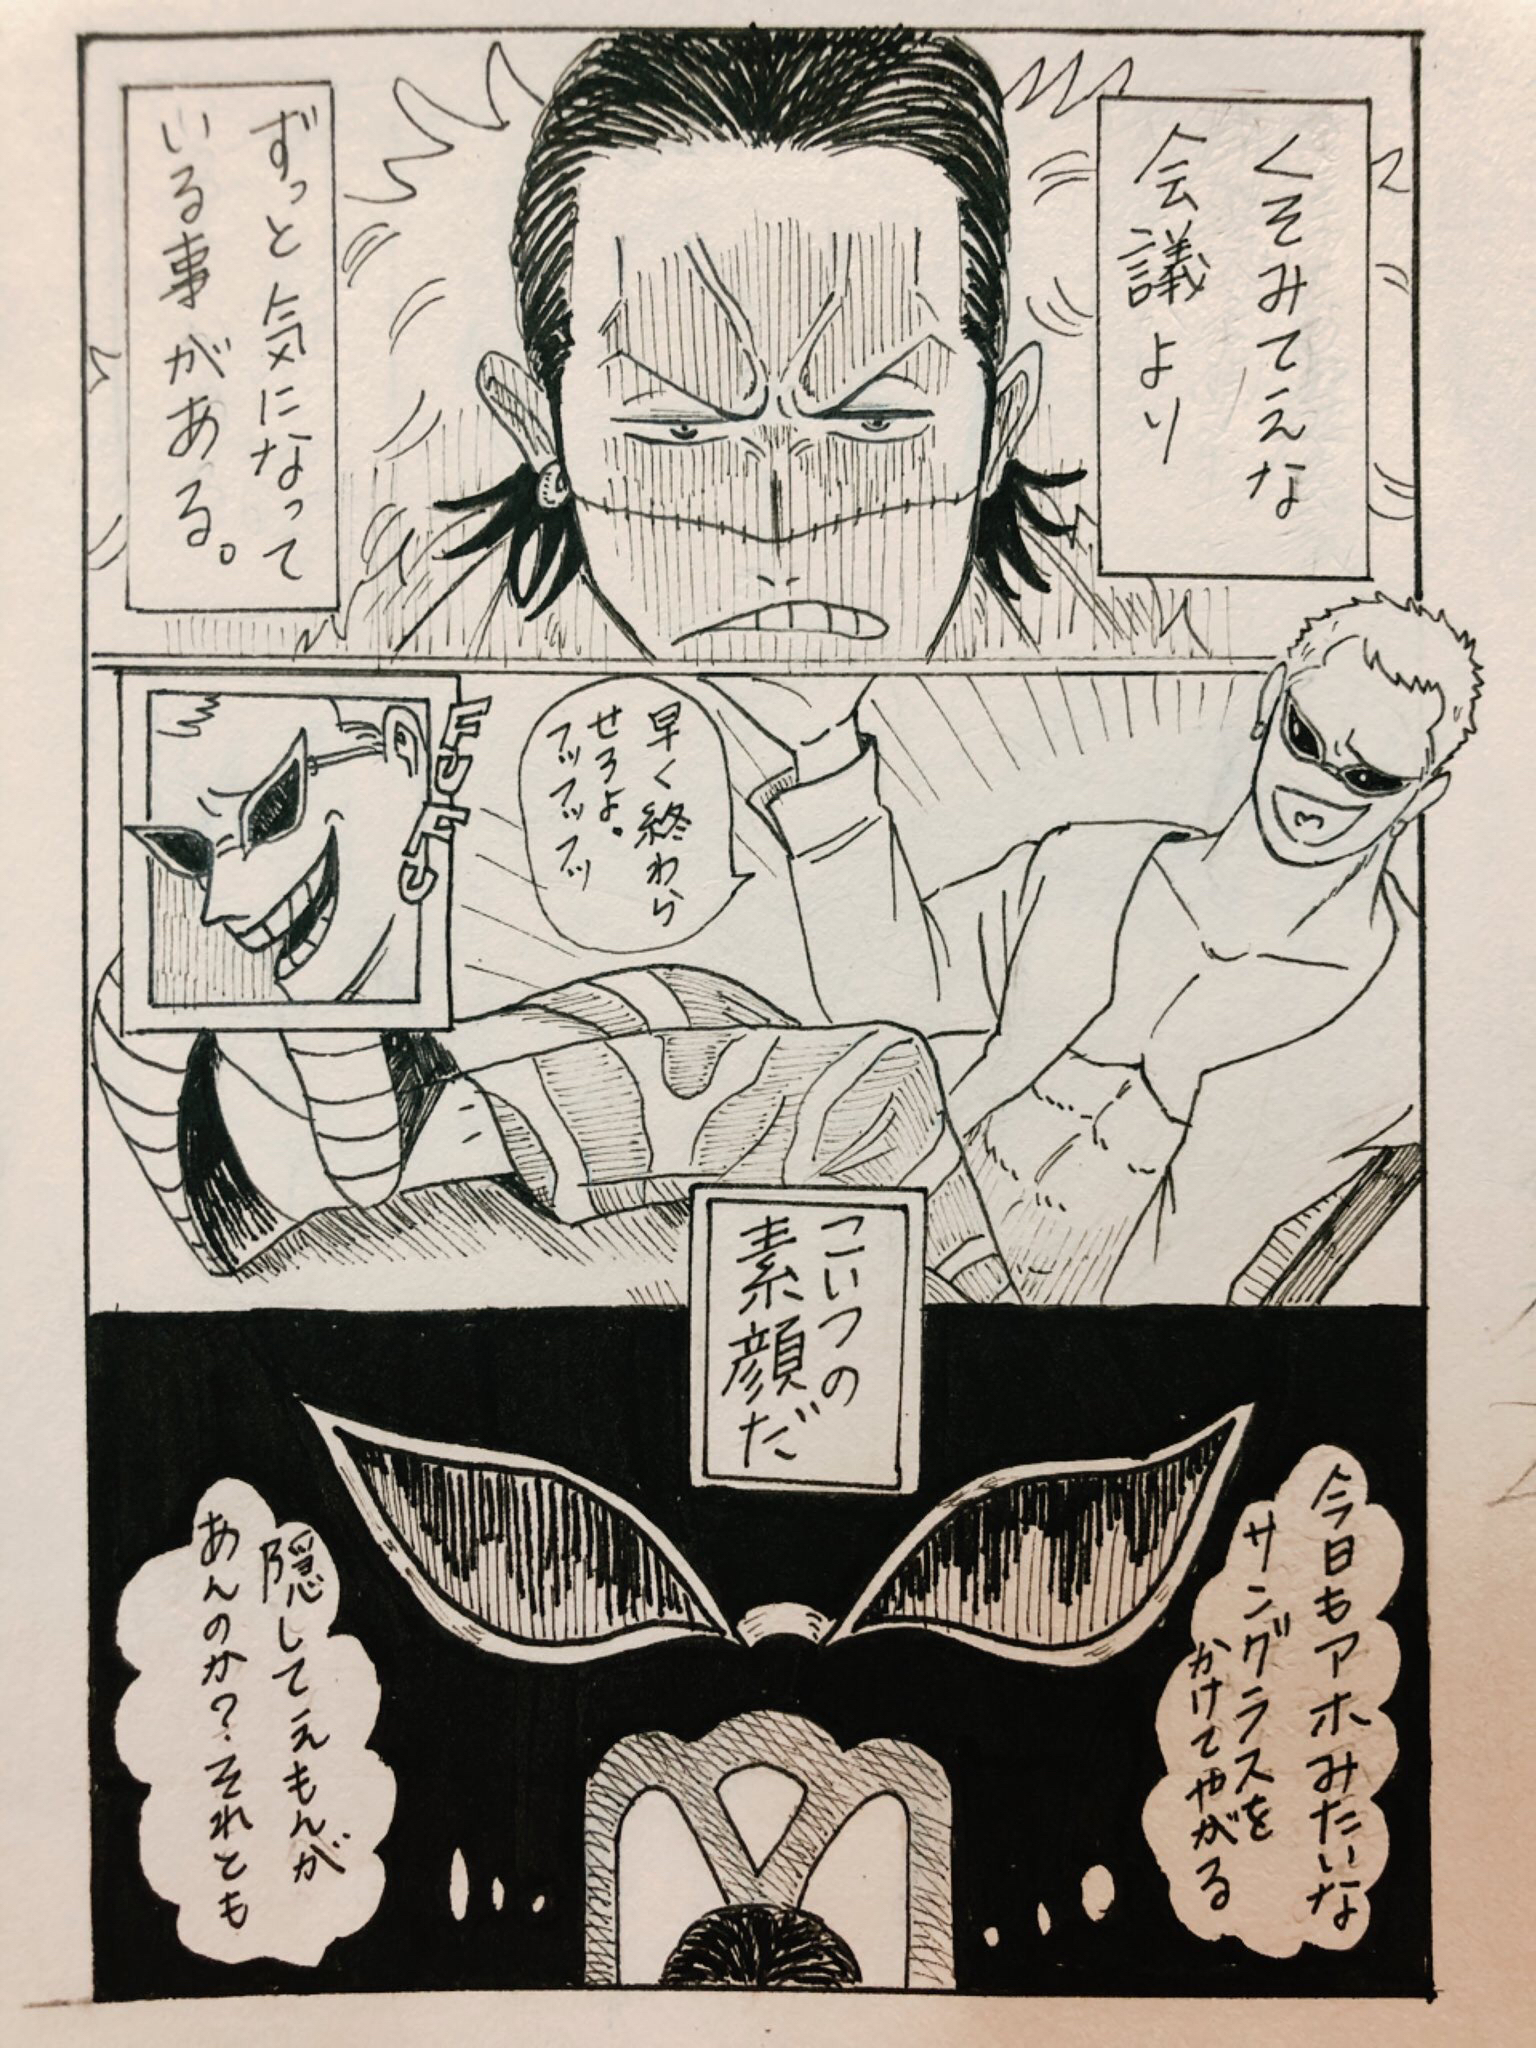 くそみてえな
会議より
ずっと気になって
いる事がある。
早く終わら
せろよ。
フッフッフッ
FUFU
こいつの
素顔だ
今日もアホみたいな
サングラスを
かけてやがる
隠してえもんが
あんのか?それとも